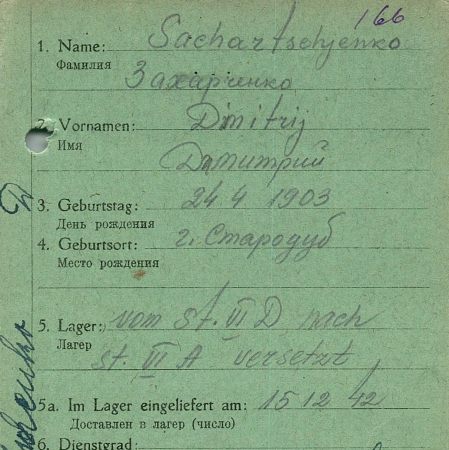 166
1. Name: Sachartschjenko
Фамилия
Захарченко
2. Vornamen: Dmitrij
Имя
Дмитрий
3. Geburtstag: 24 4 1903
День рождения
4. Geburtsort: г. Стародуб
Место рождения
5. Lager: vom St. VI D nach
Лагер
St. VI A versetzt
5a. Im Lager eingeliefert am: 15 12 42
Доставлен в лагер (число)
6. Dienstgrad: